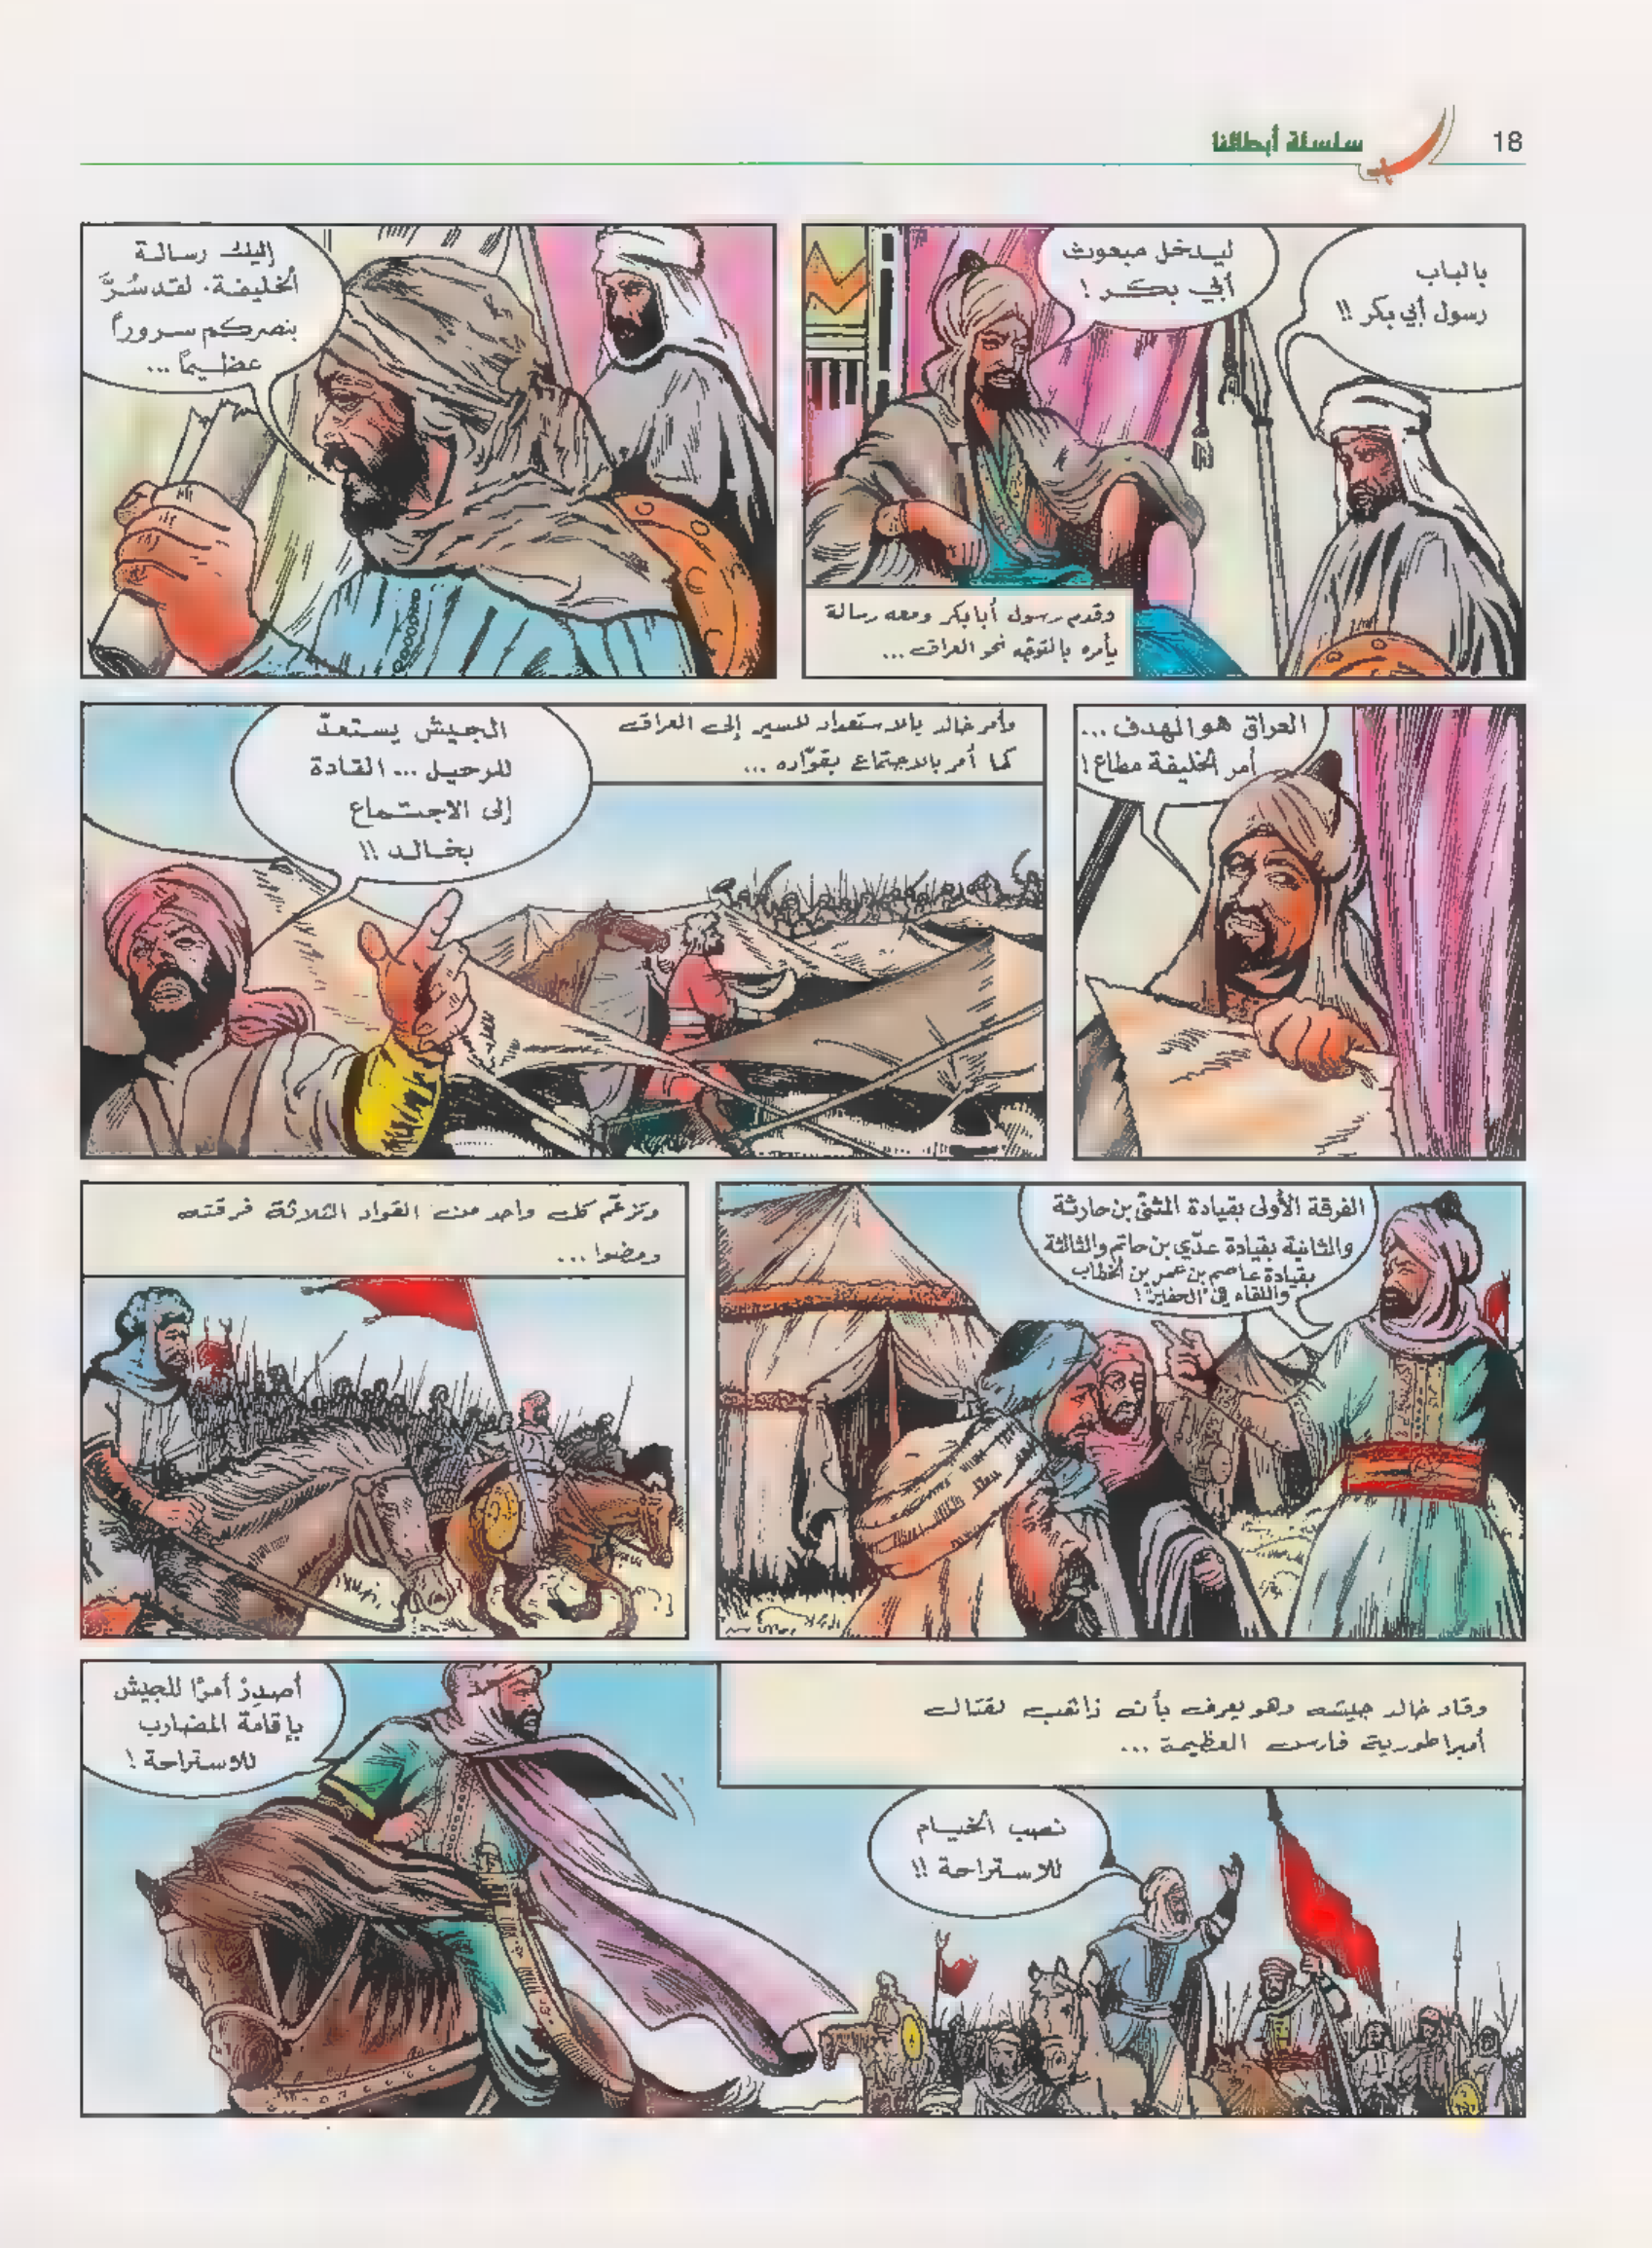 18
سلسلة أبطالنا
بالباب
رسول أبي بكر !!
ليدخل مبعوث
أبي بكر !
وقدم رسول أبابكر ومعه رسالة
يأمره بالتوجّه نحو العراق ...
إليك رسالة
الخليفة. لقد سُرَّ
بنصركم سروراً
عظيماً ...
العراق هو الهدف ...
أمر الخليفة مطاع !
وأمر خالد بالاستعداد للمسير إلى العراق
كما أمر بالاجتماع بقوّاده ...
الجيش يستعدّ
للرحيل ... القادة
إلى الاجتماع
بخالد !!
الفرقة الأولى بقيادة المثنّى بن حارثة
والثانية بقيادة عدّي بن حاتم والثالثة
بقيادة عاصم بن عمر بن الخطاب
واللقاء في "الحفير" !
وتزعّم كل واحد من القواد الثلاثة فرقته
ومضوا ...
وقاد خالد جيشه وهو يعرف بأنه ذاهب لقتال
أمبراطورية فارس العظيمة ...
أصدِرْ أمرًا للجيش
بإقامة المضارب
للاستراحة !
نصب الخيام
للاستراحة !!